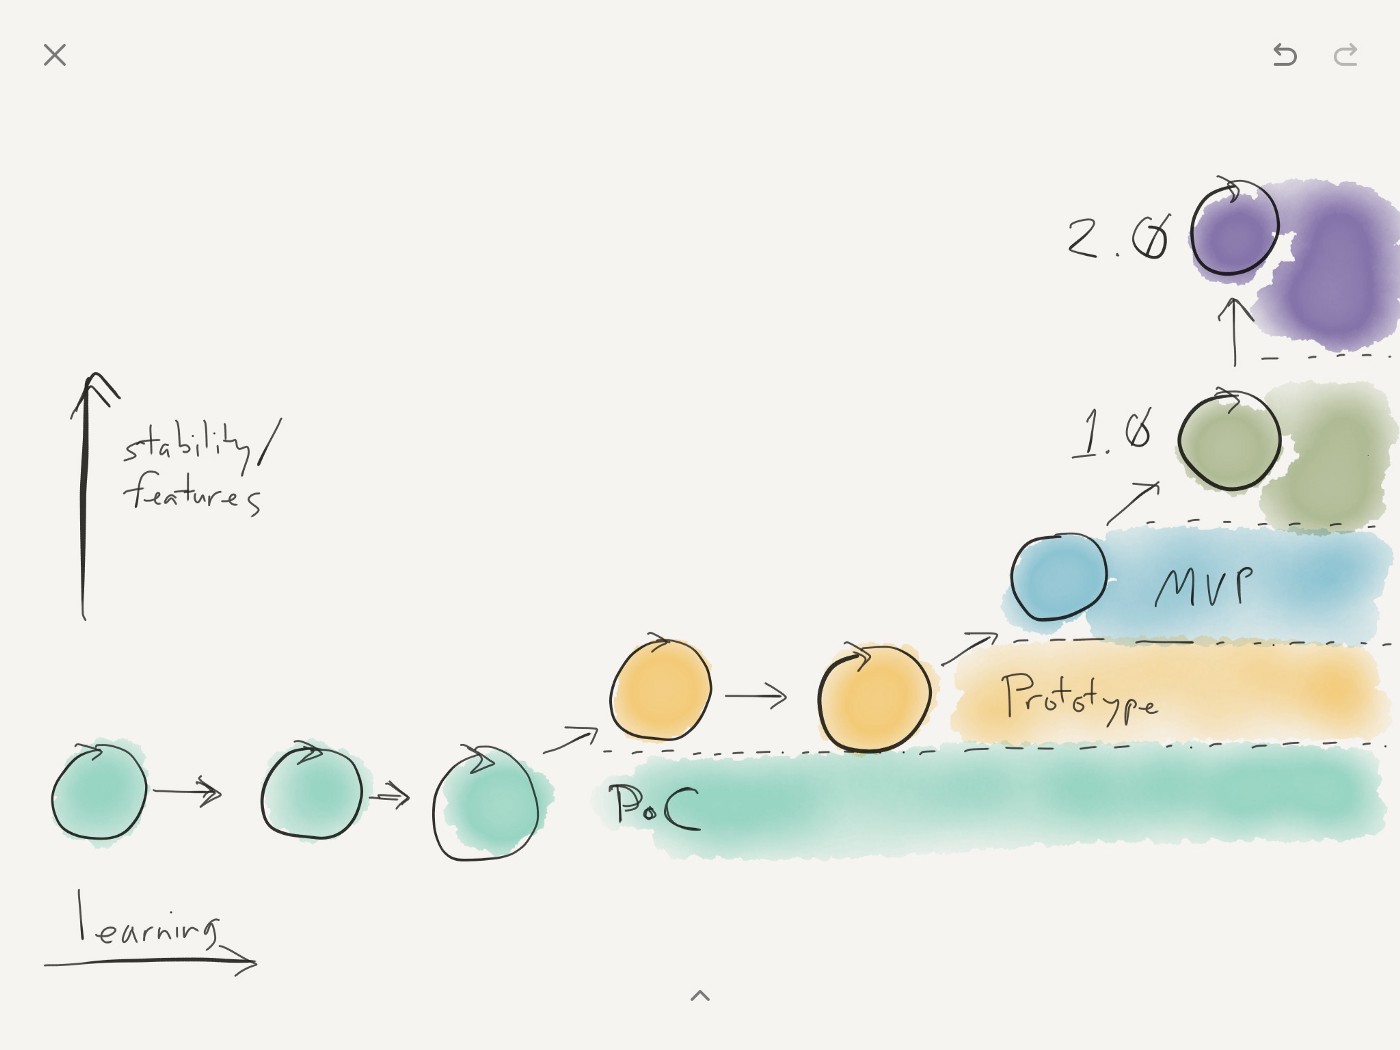 2.0
1.0
stability/
features
MVP
Prototype
PoC
learning